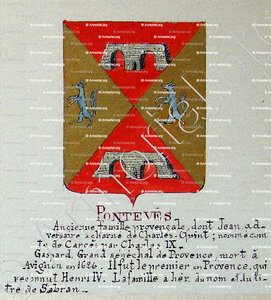 PONTEVÈS
Ancienne famille provençale, dont Jean, ad-
versaire acharné de Charles-Quint; nommé com-
te de Carcès par Charles IX.
Gaspard, Grand sénéchal de Provence, mort à
Avignon en 1686. Il fut le premier en Provence, qui
reconnut Henri IV. La famille a hér. du nom et du ti-
tre de Sabran.